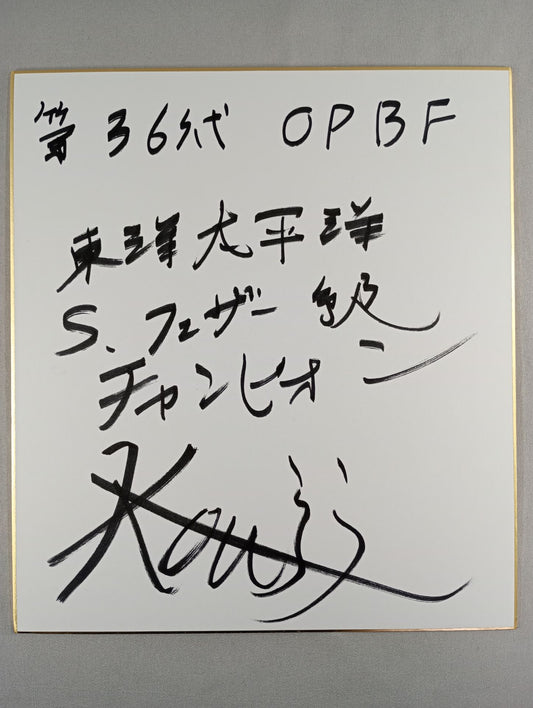 第36代 OPBF
東洋太平洋
S、フェザー級
チャンピオン